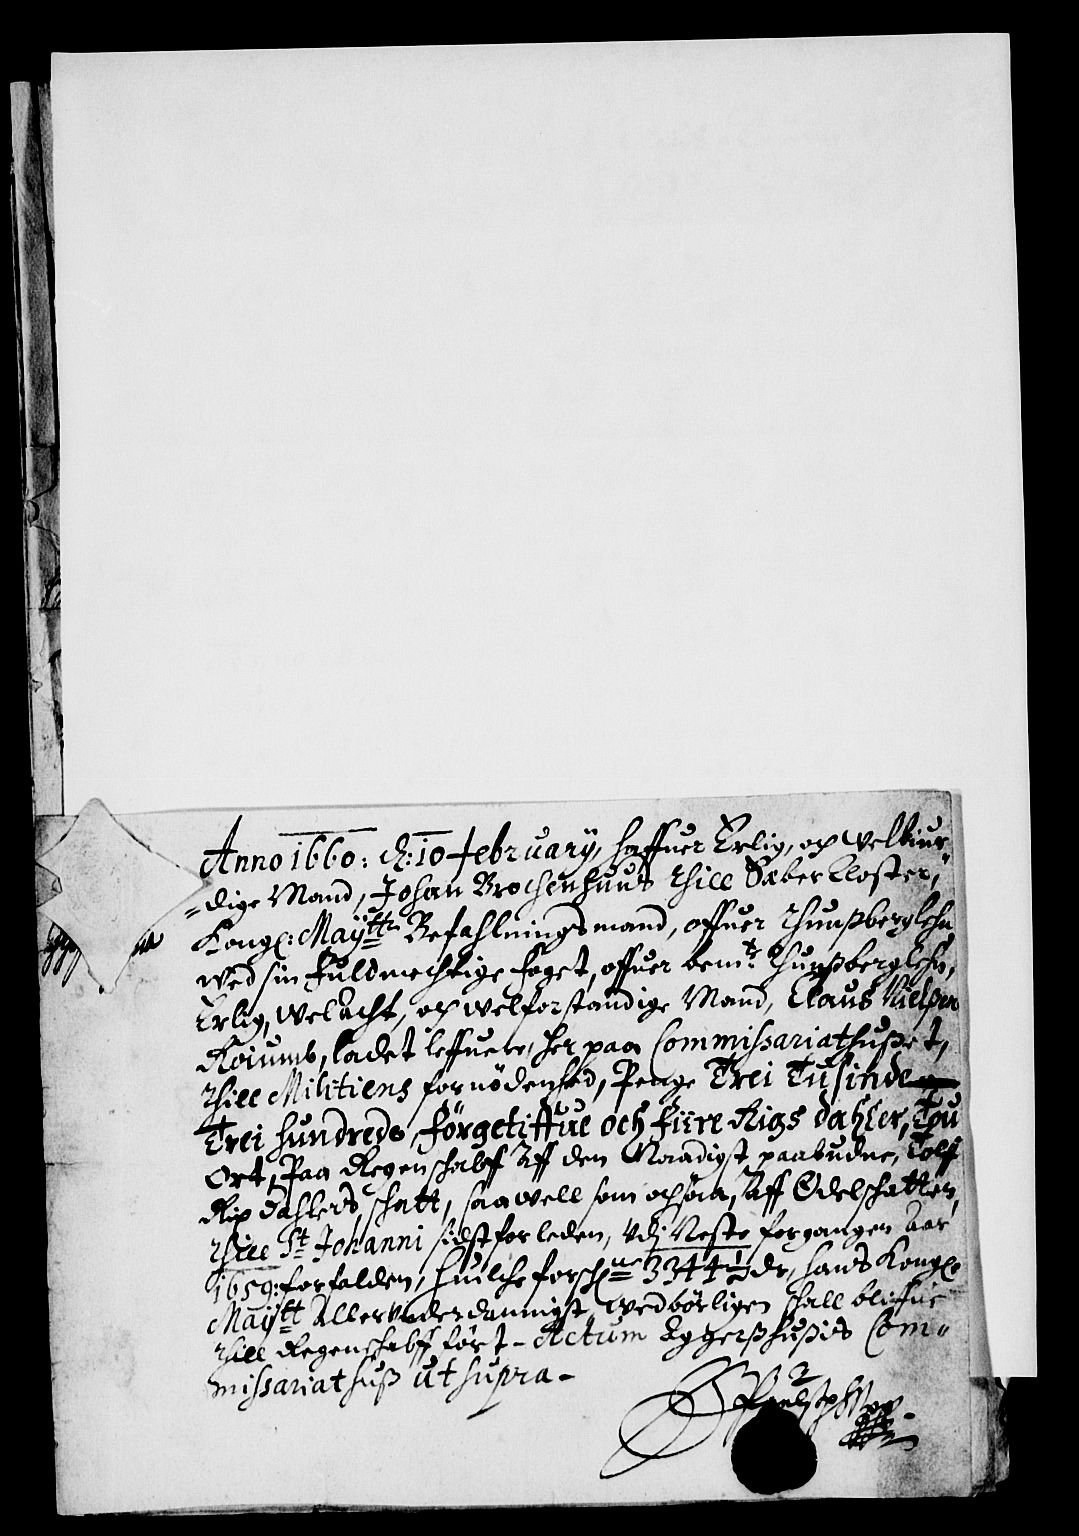 Anno 1660: d: 10 February, haffuer Erlig, och Velbiur-
=dige Mand, Johan Brochenhuus thill Sæberkloster,
Kongl: Maytts Befahlningsmand, offuer Thunßberglehn
wed sin fuldmechtige foget, offuer bemte Thunßberglehn,
Erlig, Velacht, och welforstandige Mand, Claus Nielßen
ladet leffuere, her paa Commissariathußet,
thill Militiens fornödenhed, Penge Trei Tusinde
Trei hundrede förgetiffue och fiire Rigs dahler, Tou
Ort, Paa Regenschabff Aff den Naadigst paabudne, Tolff
Rix dahlers schatt, saa well som ochsaa, Aff Odelschatten,
thill St Johanni sidst forleden, Udj Neste forgangen Aar
1659: forfalden, huilche forschne 3344½ dr, hans Kongl:
Maytt Allerunderdannigst, wedbörligen schall bliffue
thill Regenschabff fört - Actum Aggerßhußis Com-
missariathuß ut supra -